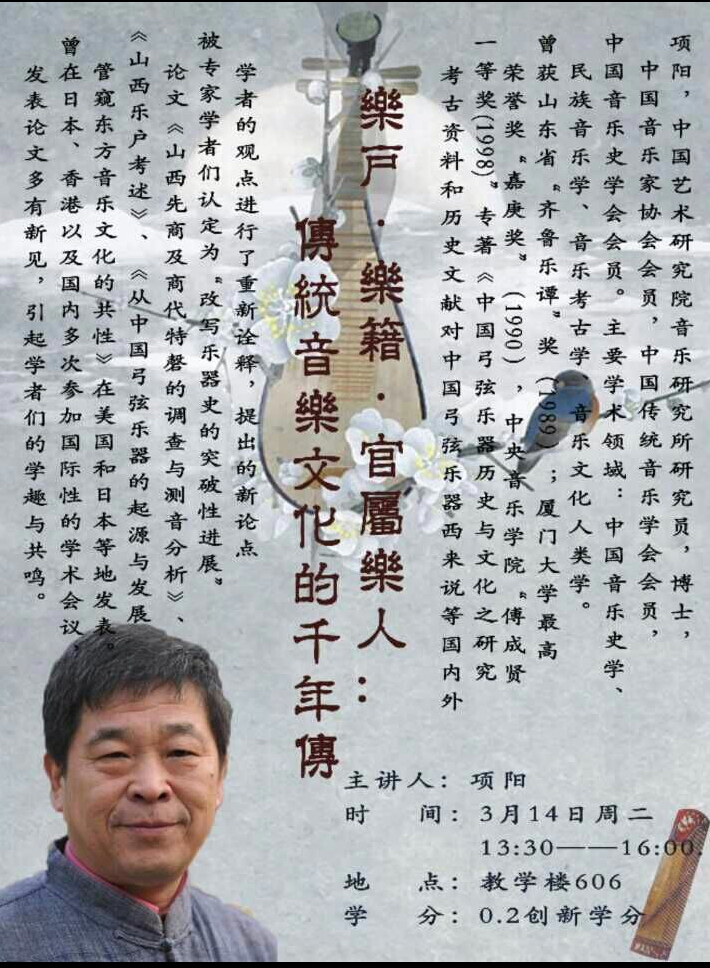 项阳，中国艺术研究院音乐研究所研究员，博士，
中国音乐家协会会员，中国传统音乐学会会员，
中国音乐史学会会员。主要学术领域：中国音乐史学、
民族音乐学、音乐考古学、音乐文化人类学。
曾获山东省“齐鲁乐谭”奖(1989)；厦门大学最高
荣誉奖“嘉庚奖”(1990)，中央音乐学院“傅成贤
一等奖(1998)”专著《中国弓弦乐器历史与文化之研究
考古资料和历史文献对中国弓弦乐器西来说等国内外
樂戶·樂籍·官屬樂人：
傳統音樂文化的千年傳
学者的观点进行了重新诠释，提出的新论点
被专家学者们认定为“改写乐器史的突破性进展”
论文《山西先商及商代特磬的调查与测音分析》、
《山西乐户考述》、《从中国弓弦乐器的起源与发展
管窥东方音乐文化的共性》在美国和日本等地发表。
曾在日本、香港以及国内多次参加国际性的学术会议，
发表论文多有新见，引起学者们的学趣与共鸣。
主讲人：项阳
时 间：3月14日周二
13:30——16:00.
地 点：教学楼606
学 分：0.2创新学分